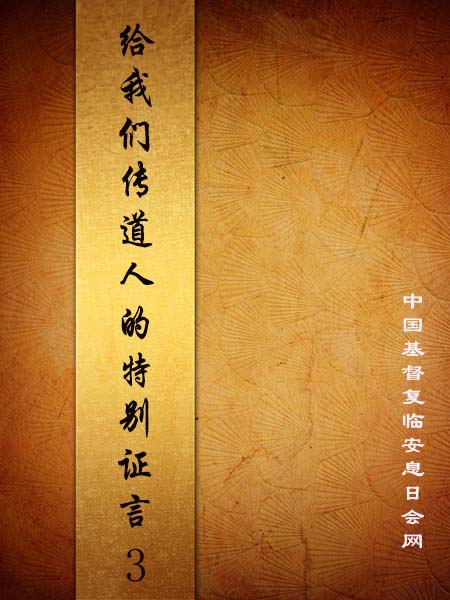 给我们传道人的特别证言3
中国基督复临安息日会网